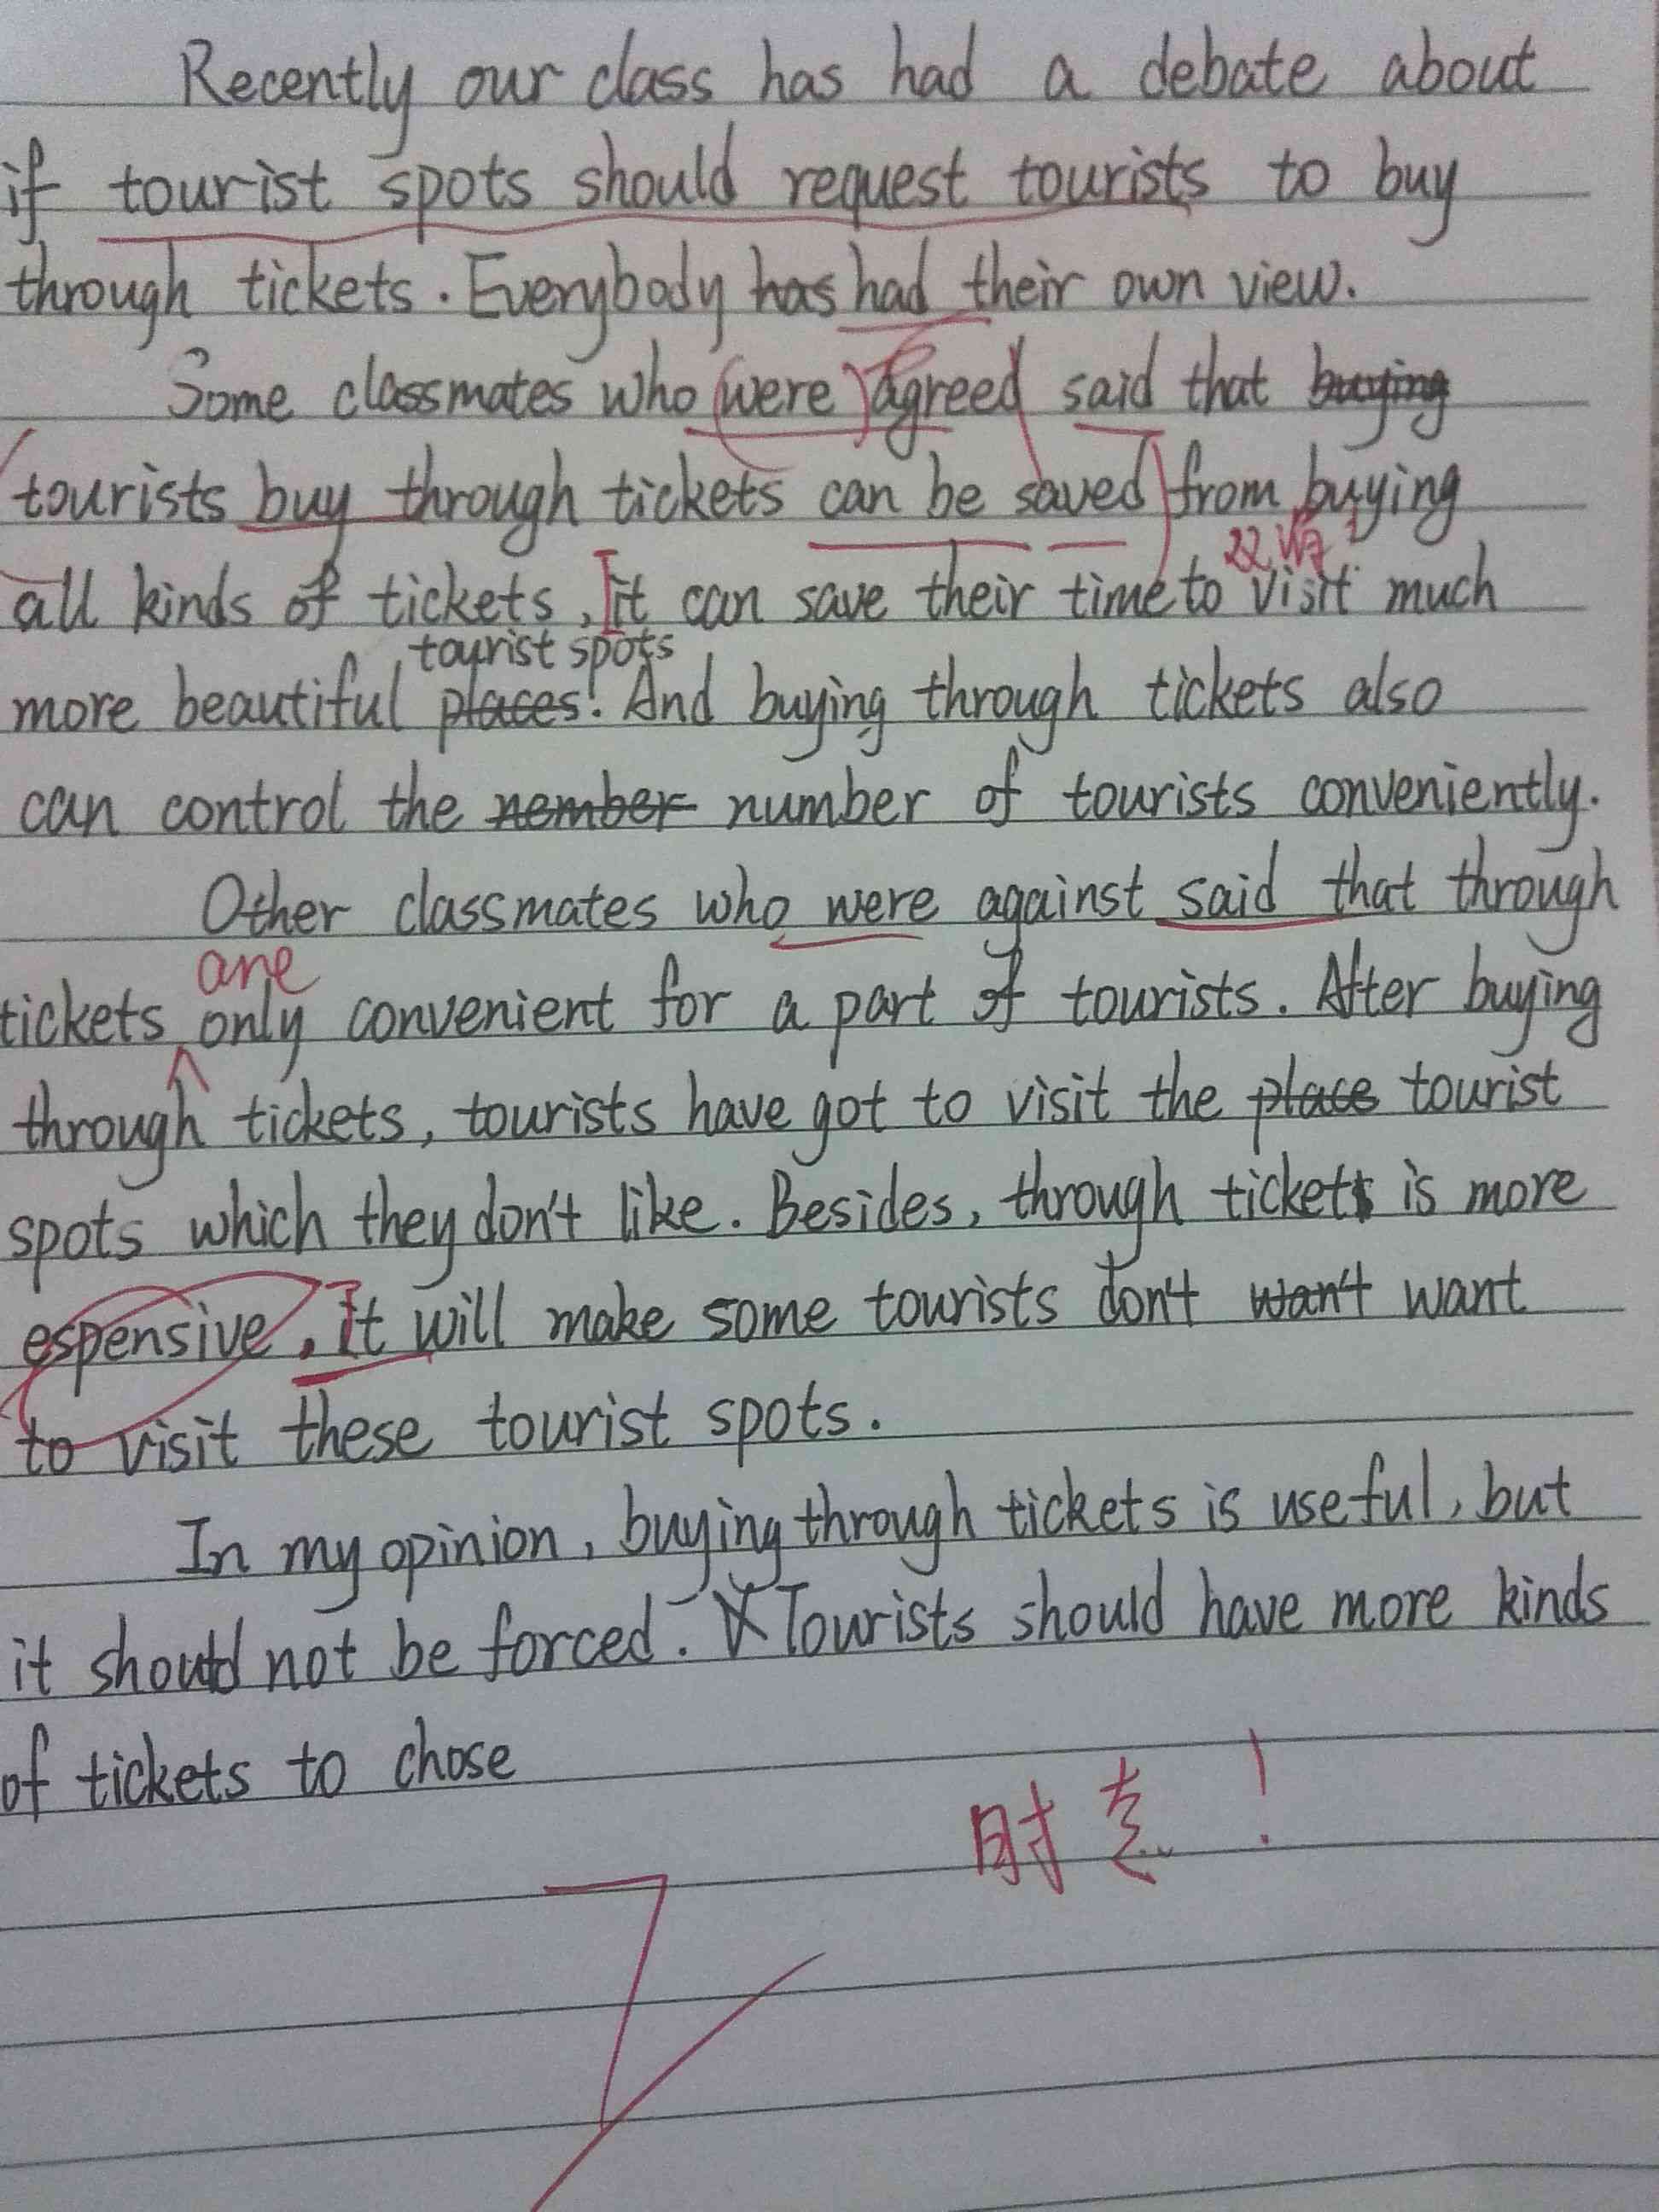 Recently our class has had a debate about
if tourist spots should request tourists to buy
through tickets. Everybody has had their own view.
Some classmates who were agreed said that buying
tourists buy through tickets can be saved from buying
all kinds of tickets, It can save their time to visit much
tourist spots
more beautiful places. And buying through tickets also
can control the nember number of tourists conveniently.
Other classmates who were against said that through
are
tickets only convenient for a part of tourists. After buying
through tickets, tourists have got to visit the place tourist
spots which they don't like. Besides, through ticket is more
espensive. It will make some tourists don't want want
to visit these tourist spots.
In my opinion, buying through tickets is useful, but
it should not be forced. Tourists should have more kinds
of tickets to chose
时态!